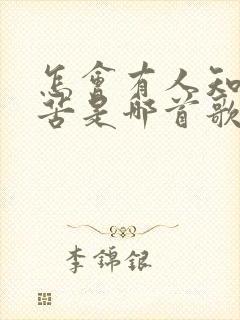 怎會有人知
苦是哪首歌
李錦銀